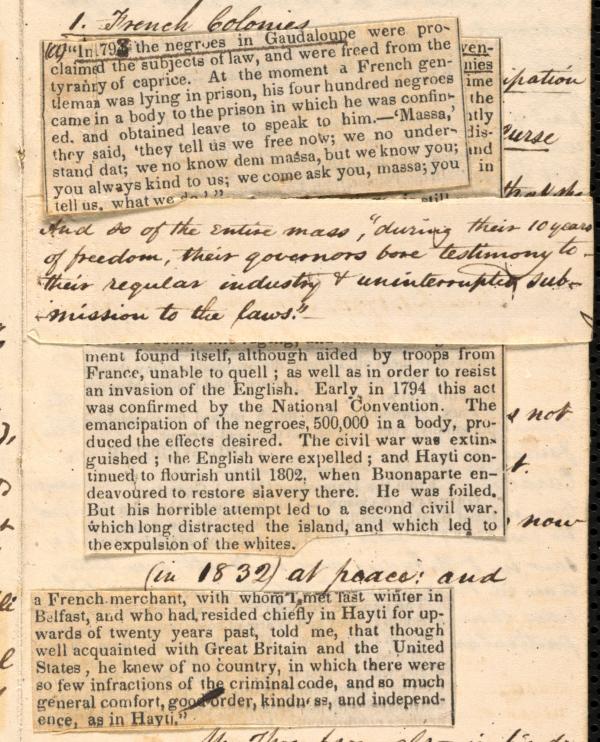 1. French Colonies
(a) "In 1793 the negroes in Gaudaloupe were pro-
claimed the subjects of law, and were freed from the
tyranny of caprice. At the moment a French gen-
tleman was lying in prison, his four hundred negroes
came in a body to the prison in which he was confin-
ed, and obtained leave to speak to him.—'Massa,'
they said, 'they tell us we free now; we no under-
stand dat; we no know dem massa, but we know you;
you always kind to us; we come ask you, massa; you
tell us, what we do.'"
ven-
nies
ime
the
ntly
dis-
and
in
ipation
curse
still
And so of the entire mass, "during their 10 years
of freedom, their governors bore testimony to
their regular industry & uninterrupted sub-
mission to the laws."
ment found itself, although aided by troops from
France, unable to quell; as well as in order to resist
an invasion of the English. Early in 1794 this act
was confirmed by the National Convention. The
emancipation of the negroes, 500,000 in a body, pro-
duced the effects desired. The civil war was extin-
guished; the English were expelled; and Hayti con-
tinued to flourish until 1802, when Buonaparte en-
deavoured to restore slavery there. He was foiled.
But his horrible attempt led to a second civil war,
which long distracted the island, and which led to
the expulsion of the whites.
s not
t.
now
(in 1832) at peace: and
a French merchant, with whom I met last winter in
Belfast, and who had resided chiefly in Hayti for up-
wards of twenty years past, told me, that though
well acquainted with Great Britain and the United
States, he knew of no country, in which there were
so few infractions of the criminal code, and so much
general comfort, good order, kindness, and independ-
ence, as in Hayti."